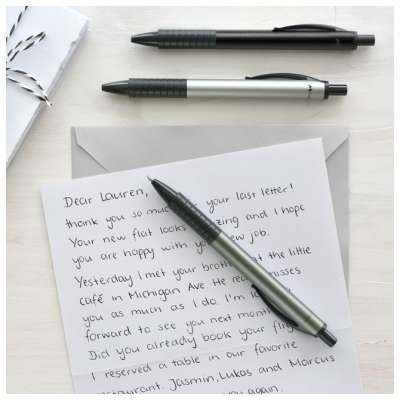 Dear Lauren,
thank you so your last letter!
Your new flat looks and I hope
you are happy with new job.
Yesterday I met your at the little
café in Michigan Ave. He
you as much as I do. I'm
forward to see you next
Did you already book your
I reserved a table in our favorite
Jasmin, Lukas and Marcus
you again.